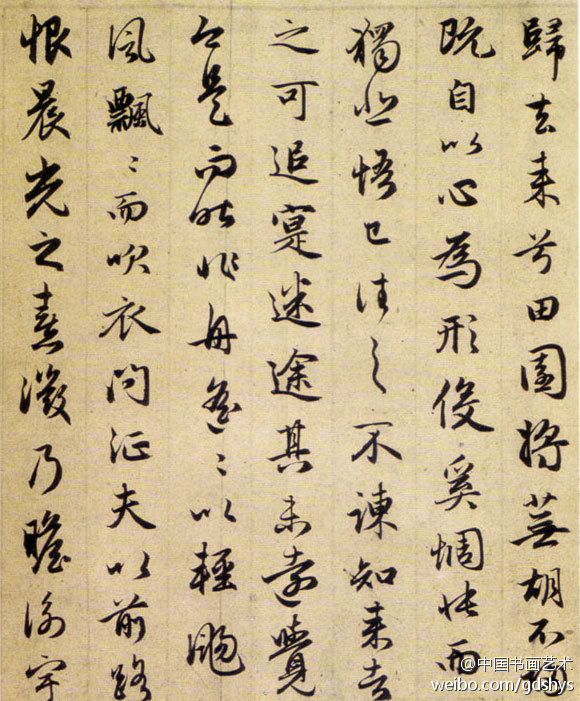 歸去来兮田園将蕪胡不歸
既自以心為形役奚惆悵而
獨悲悟已往之不諫知来者
之可追寔迷途其未遠覺
今是而昨非舟遙〻以輕颺
風飄〻而吹衣問征夫以前路
恨晨光之熹微乃瞻衡宇
@中国书画艺术
weibo.com/gdshys